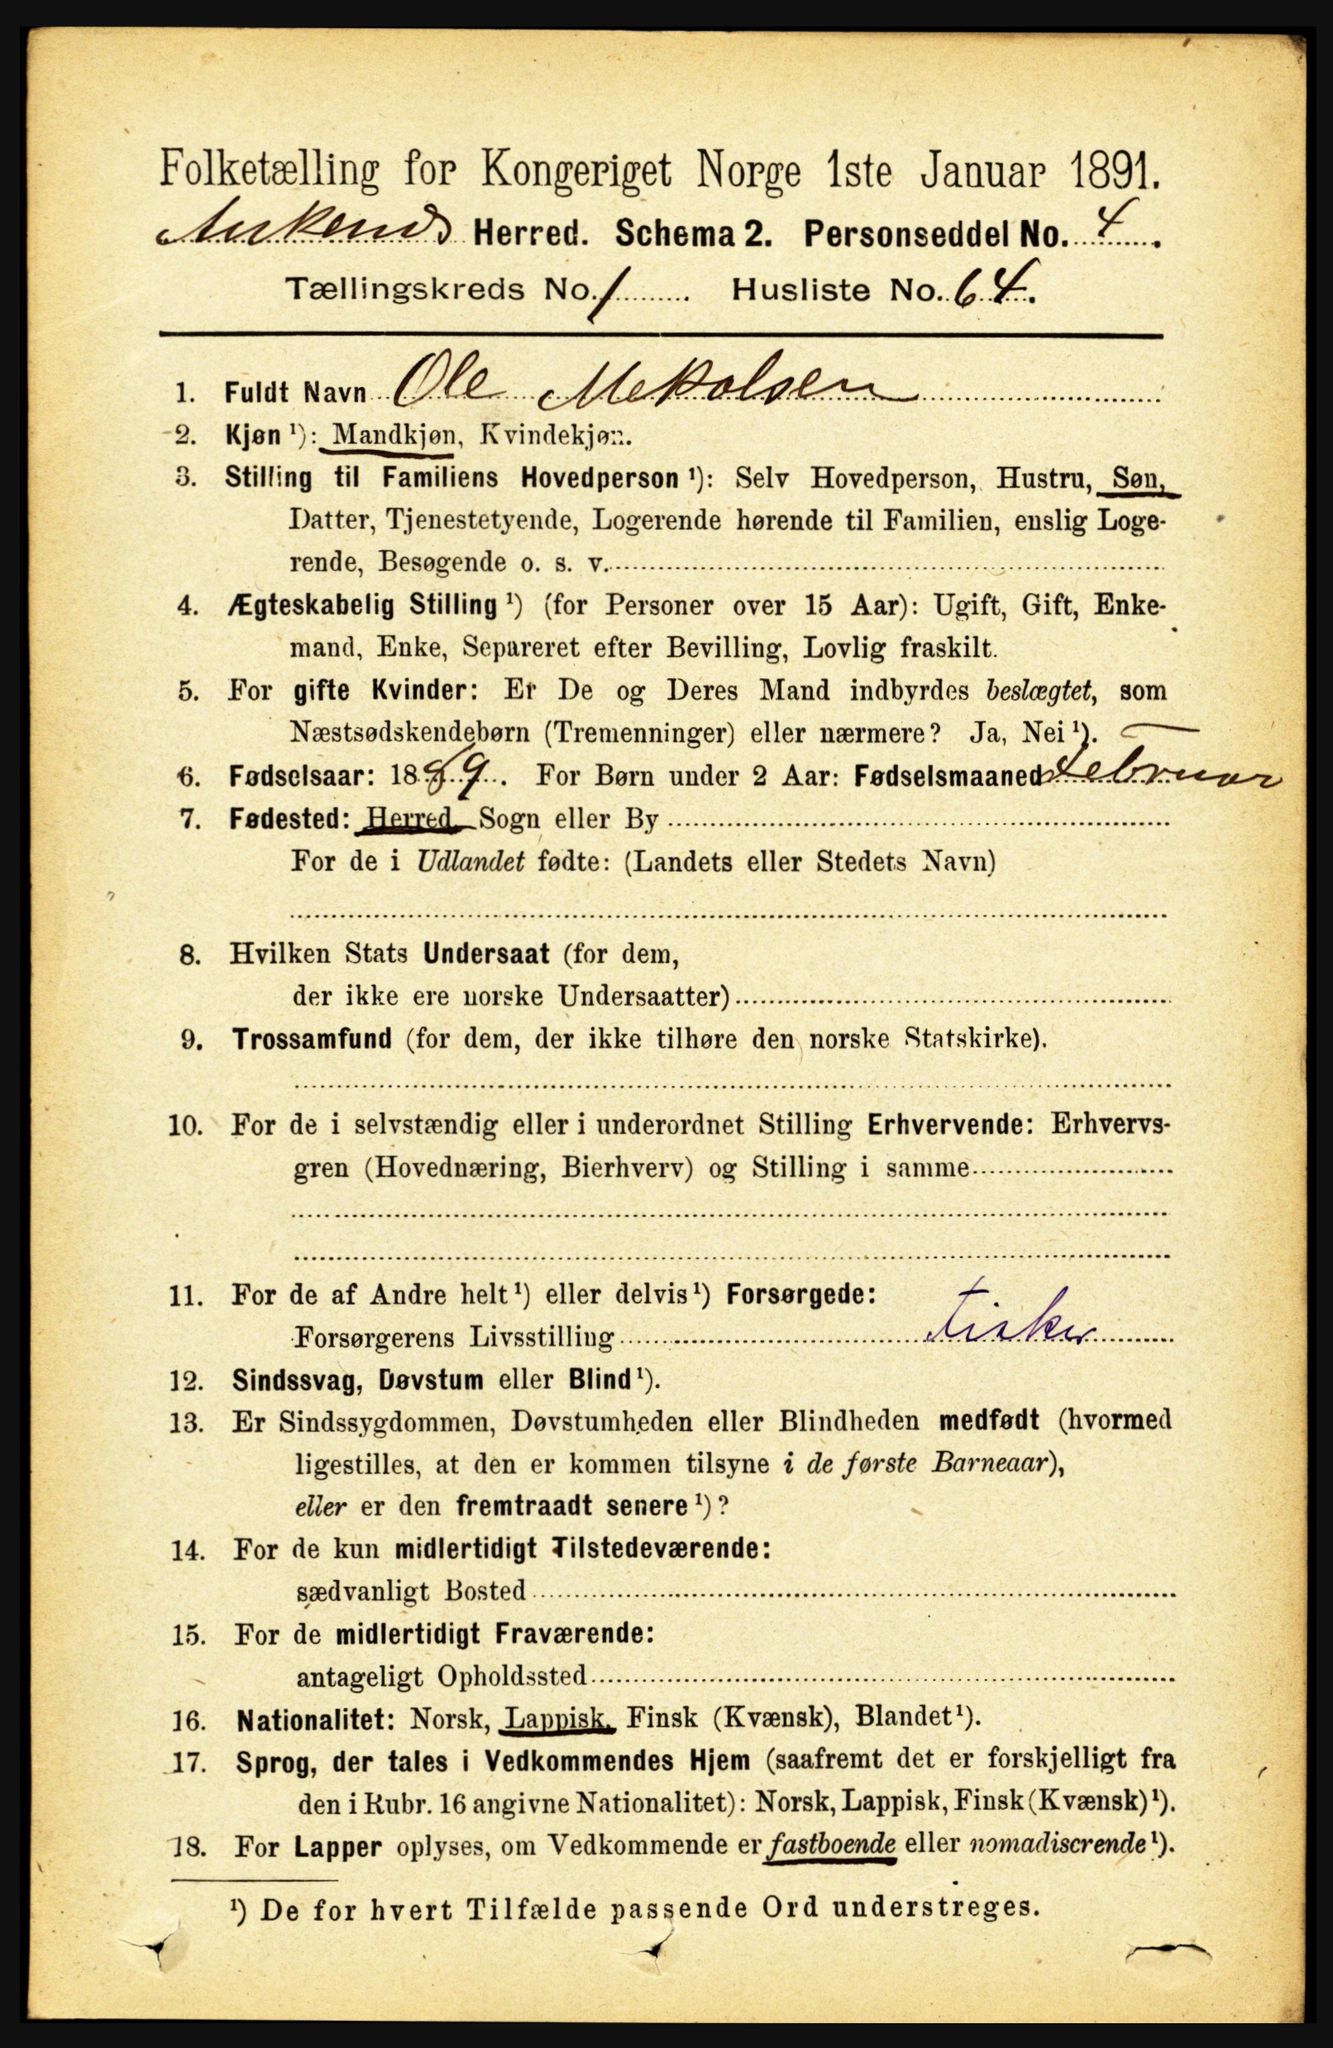 Folketælling for Kongeriget Norge 1ste Januar 1891.
Ankenes Herred. Schema 2. Personseddel No. 4.
Tællingskreds No. 1. Husliste No. 64.
1. Fuldt Navn Ole Mekalsen
2. Kjøn ¹): Mandkjøn, Kvindekjøn.
3. Stilling til Familiens Hovedperson ¹): Selv Hovedperson, Hustru, Søn,
Datter, Tjenestetyende, Logerende hørende til Familien, enslig Loge-
rende, Besøgende o. s. v.
4. Ægteskabelig Stilling ¹) (for Personer over 15 Aar): Ugift, Gift, Enke-
mand, Enke, Separeret efter Bevilling, Lovlig fraskilt.
5. For gifte Kvinder: Er De og Deres Mand indbyrdes beslægtet, som
Næstsødskendebørn (Tremenninger) eller nærmere? Ja, Nei ¹).
6. Fødselsaar: 1889. For Børn under 2 Aar: Fødselsmaaned Februar
7. Fødested: Herred, Sogn eller By
For de i Udlandet fødte: (Landets eller Stedets Navn)
8. Hvilken Stats Undersaat (for dem,
der ikke ere norske Undersaatter)
9. Trossamfund (for dem, der ikke tilhøre den norske Statskirke).
10. For de i selvstændig eller i underordnet Stilling Erhvervende: Erhvervs-
gren (Hovednæring, Bierhverv) og Stilling i samme
11. For de af Andre helt ¹) eller delvis ¹) Forsørgede:
Forsørgerens Livsstilling Fisker
12. Sindssvag, Døvstum eller Blind ¹).
13. Er Sindssygdommen, Døvstumheden eller Blindheden medfødt (hvormed
ligestilles, at den er kommen tilsyne i de første Barneaar),
eller er den fremtraadt senere ¹)?
14. For de kun midlertidigt Tilstedeværende:
sædvanligt Bosted
15. For de midlertidigt Fraværende:
antageligt Opholdssted
16. Nationalitet: Norsk, Lappisk, Finsk (Kvænsk), Blandet ¹).
17. Sprog, der tales i Vedkommendes Hjem (saafremt det er forskjelligt fra
den i Rubr. 16 angivne Nationalitet): Norsk, Lappisk, Finsk (Kvænsk) ¹).
18. For Lapper oplyses, om Vedkommende er fastboende eller nomadiserende ¹).
¹) De for hvert Tilfælde passende Ord understreges.